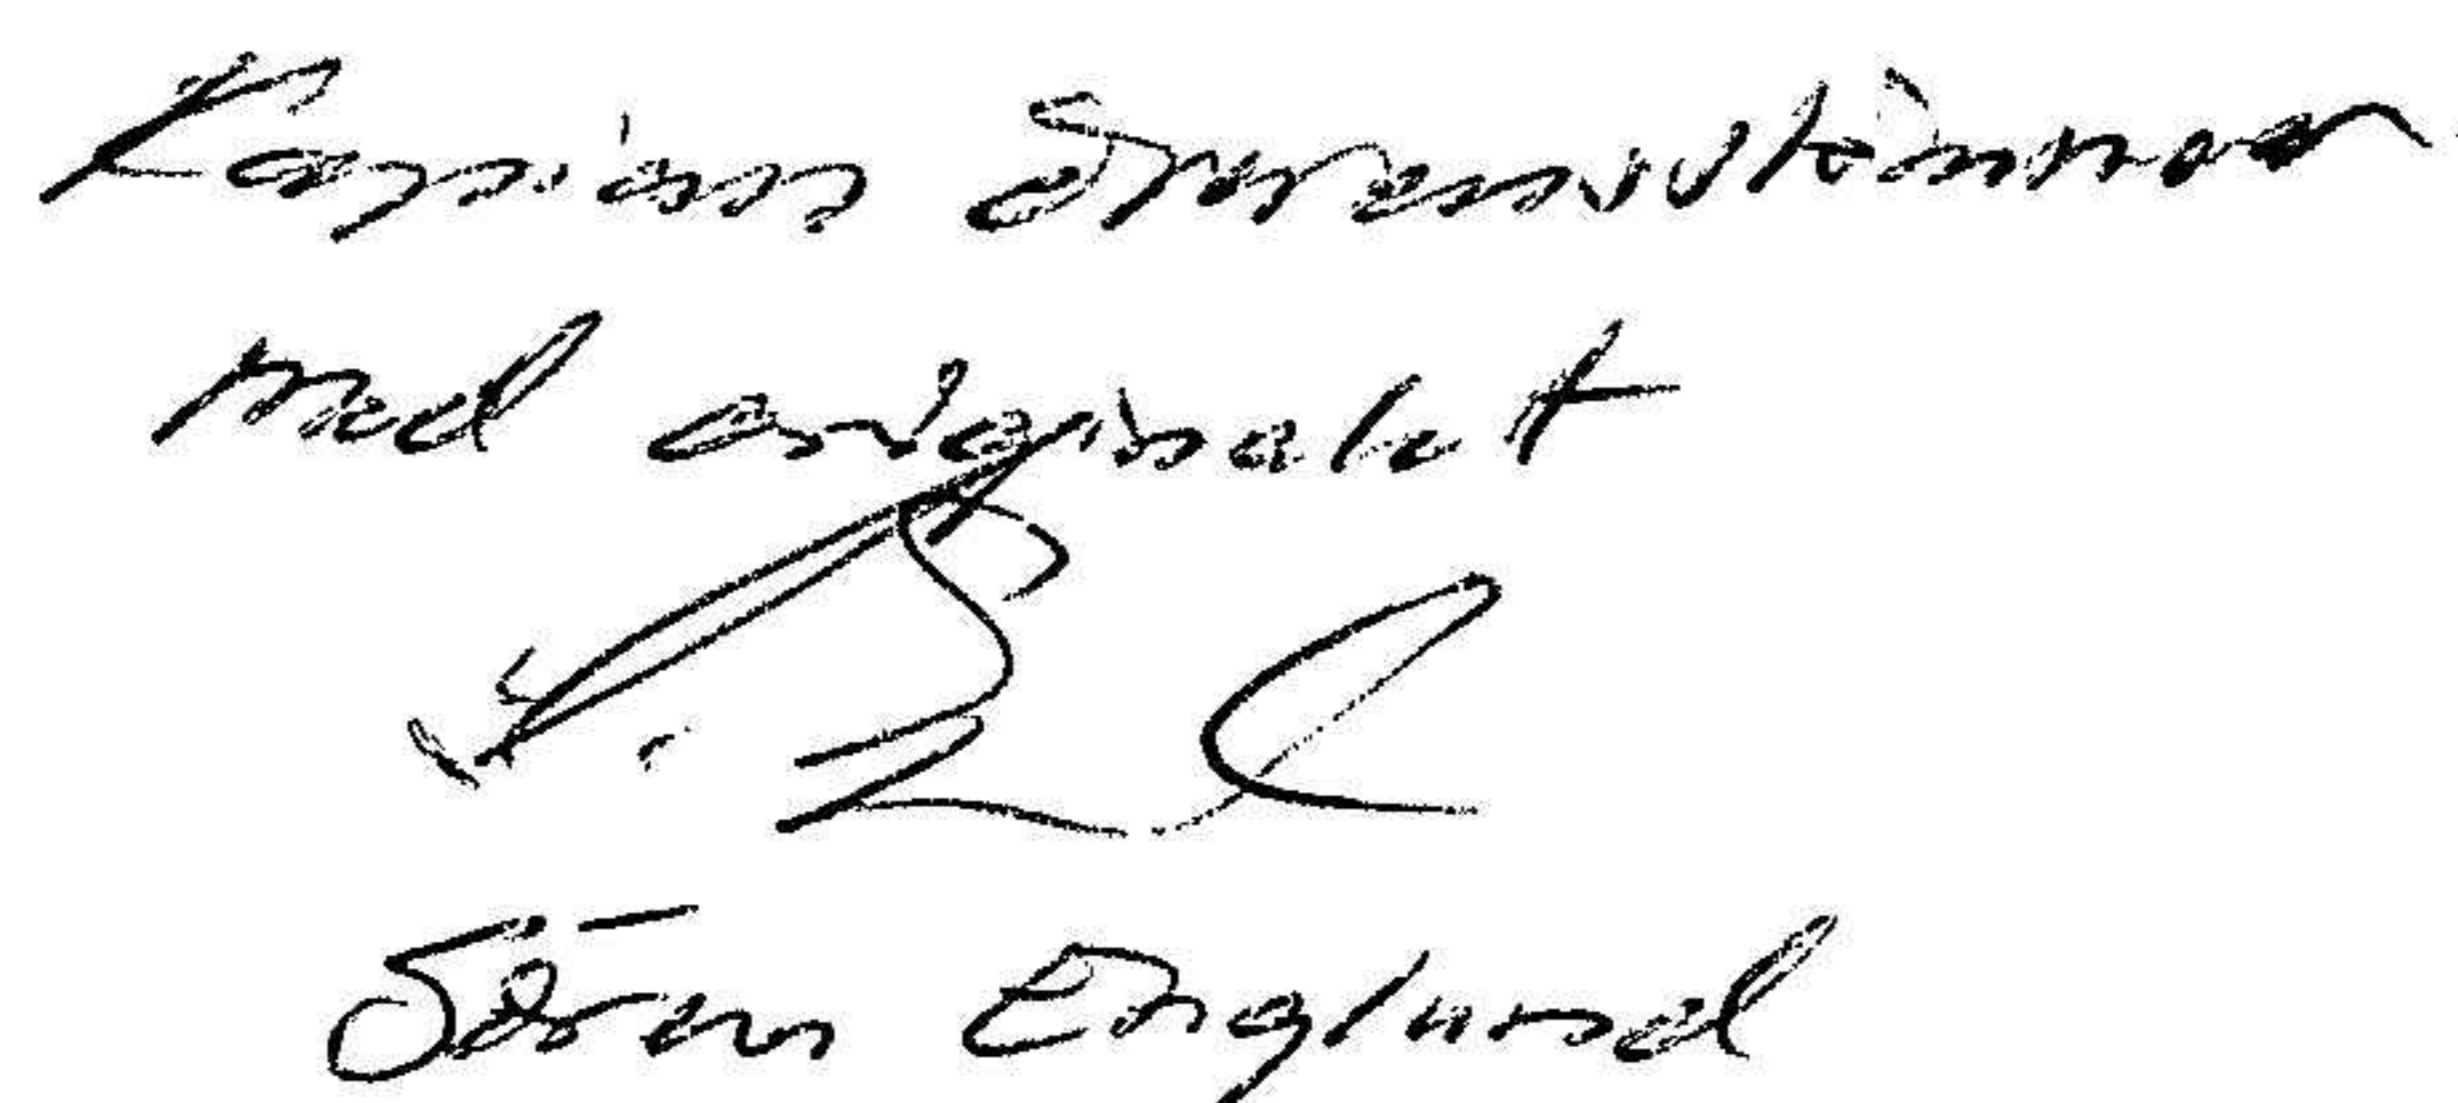 Kopian överensstämmer
med originalet
Sören Englund